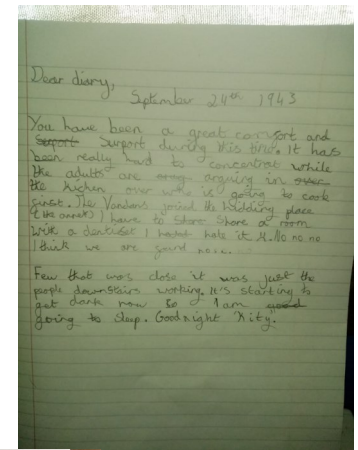 Dear diary,
September 24th 1943
You have been a great comfort and
Suport Support during this time. It has
been really hard to concentrat while
the adults are arguing in over
the kichen over who is going to cook
first. The Vandans joined th hidding place
(the annex) I have to share share a room
with a dentisst I hate it. No no no
I think we are
Few that was close it was just the
people downstairs working. It's starting to
get dark now so I am good
going to sleep. Goodnight "Kity".